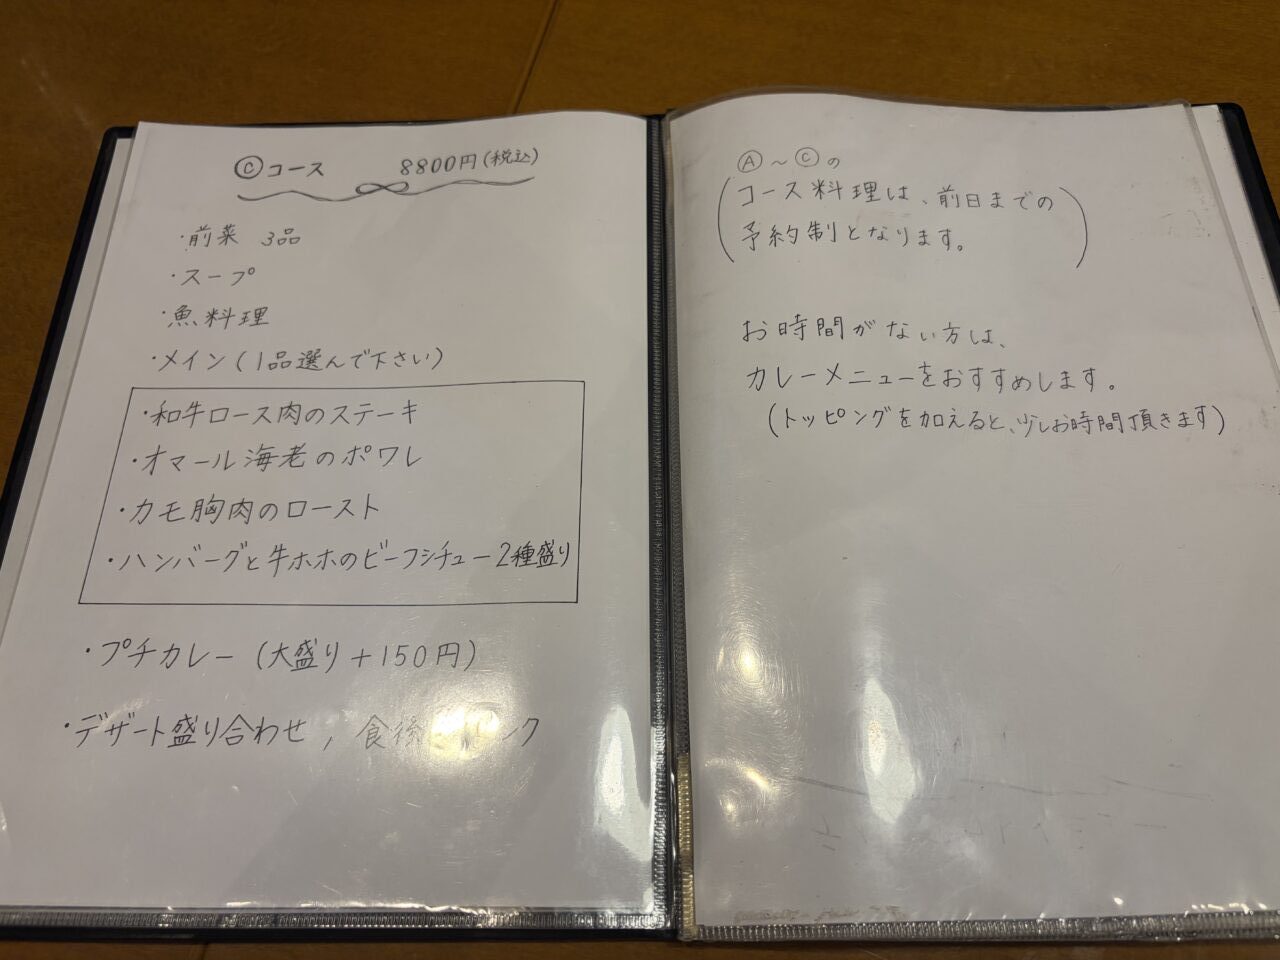 Ⓒコース 8800円(税込)
・前菜 3品
・スープ
・魚料理
・メイン(1品選んで下さい)
・和牛ロース肉のステーキ
・オマール海老のポワレ
・カモ胸肉のロースト
・ハンバーグと牛ホホのビーフシチュー2種盛り
・プチカレー(大盛り+150円)
・デザート盛り合わせ, 食後
Ⓐ~Ⓒの
(コース料理は、前日までの
予約制となります。)
お時間がない方は、
カレーメニューをおすすめします。
(トッピングを加えると、少しお時間頂きます)